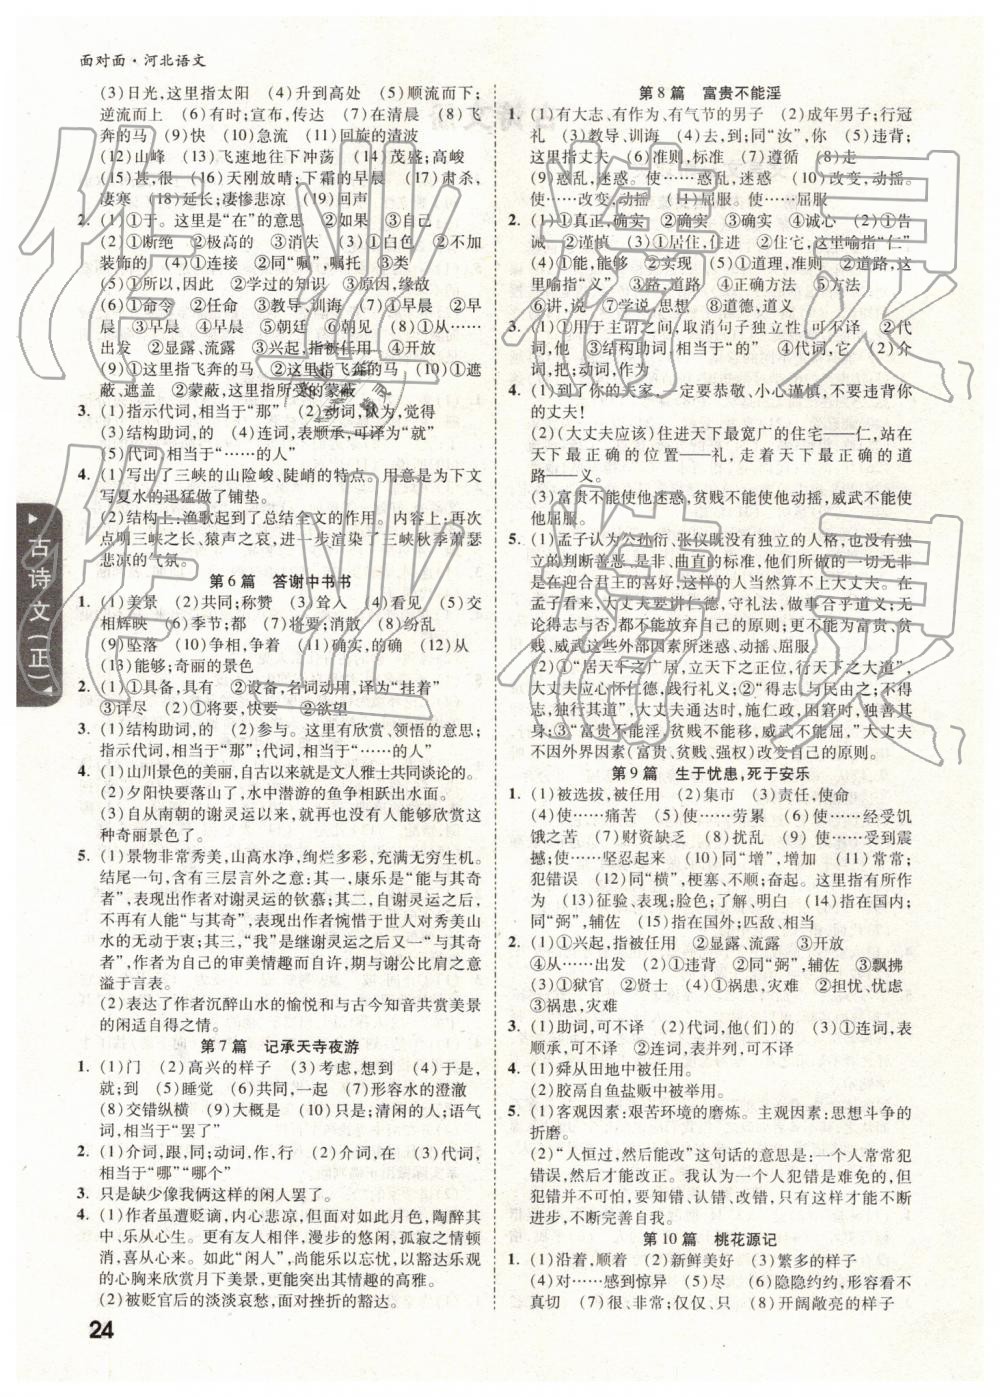 面对面·河北语文
(3)日光,这里指太阳　(4)升到高处　(5)顺流而下;
逆流而上　(6)有时;宣布,传达　(7)在清晨　(8)飞
奔的马　(9)快　(10)急流　(11)回旋的清波
(12)山峰　(13)飞速地往下冲荡　(14)茂盛;高峻
(15)甚,很　(16)天刚放晴;下霜的早晨　(17)肃杀,
凄寒　(18)延长;凄惨悲凉　(19)回声
2. (1)①于。这里是“在”的意思　②如果　③自己
(2)①断绝　②极高的　③消失　(3)①白色　②不加
装饰的　(4)①连接　②同“嘱”,嘱托　③类
(5)①所以,因此　②学过的知识　③原因,缘故
(6)①命令　②任命　③教导、训海　(7)①早晨　②早
晨　③早晨　④早晨　⑤朝廷　⑥朝见　(8)①从……
出发　②显露、流露　③兴起,指被任用　④开放
(9)①这里指飞奔的马　②这里指飞奔的马　(10)①遮
蔽、遮盖　②蒙蔽,这里指所受的蒙蔽
3. (1)指示代词,相当于“那”　(2)动词,认为,觉得
(3)结构助词,的　(4)连词,表顺承,可译为“就”
(5)代词,相当于“……的人”
4. (1)写出了三峡的山险峻、陡峭的特点。用意是为下文
写夏水的迅猛做了铺垫。
(2)结构上:渔歌起到了总结全文的作用。内容上:再次
点明三峡之长、猿声之哀,进一步渲染了三峡秋季萧瑟
悲凉的气氛。
第6篇　答谢中书书
1. (1)美景　(2)共同;称赞　(3)耸入　(4)看见　(5)交
相辉映　(6)季节;都　(7)将要;消散　(8)纷乱
(9)坠落　(10)争相,争着　(11)确实,的确　(12)从
(13)能够;奇丽的景色
2. (1)①具备,具有　②设备,名词动词,可译为“挂着”
③详尽　(2)①将要,快要　②欲望
3. (1)结构助词,的　(2)参与。这里有欣赏、领悟的意思;
指示代词,相当于“那”;代词,相当于“……的人”
4. (1)山川景色的美丽,自古以来就是文人雅士共同谈论的。
(2)夕阳快要落山了,水中潜游的鱼争相跃出水面。
(3)自从南朝的谢灵运以来,就再也没有人能够欣赏这
种奇丽景色了。
5. (1)景物非常秀美,山高水净,绚烂多彩,充满无穷生机。
结尾一句,含有三层言外之意:其一,康乐是“能与其奇
者”,表现出作者对谢灵运的钦慕;其二,自谢灵运之后,
不再有人能“与其奇”,表现出作者惋惜于世人对秀美山
水的无动于衷;其三,“我”是继谢灵运之后又一“与其奇
者”,表现出作者因自己的审美情趣而自许,期与谢公比肩之意
溢于言表。
(2)表达了作者沉醉山水的愉悦和与古今知音共赏美景
的闲适自得之情。
第7篇　记承天寺夜游
1. (1)门　(2)高兴的样子　(3)考虑,想到　(4)于是,
就;到　(5)睡觉　(6)共同,一起　(7)形容水的澄澈
(8)交错纵横　(9)大概是　(10)只是;清闲的人;语气
词,相当于“罢了”
2. (1)介词,跟,同;动词,作,行　(2)介词,在　(3)代词,
相当于“哪”“哪个”
3. 只是缺少像我俩这样的闲人罢了。
4. (1)作者虽遭贬谪,内心悲凉,但面对如此月色,陶醉其
中,乐从心生。虽有郁闷,漫步的悠闲、孤寂让他触景伤
情,喜从心来。如此“闲人”,尚能乐以忘忧,以豁达乐观
的心胸来欣赏月下美景,是非常难得的高雅。
(2)被贬官后的淡淡哀愁,面对挫折的豁达。
24
古诗文(正)
第8篇　富贵不能淫
1. (1)有大志、有作为、有气节的男子　(2)成年男子;行冠
礼　(3)教导、训诲　(4)去,到;同“汝”,你　(5)违背;
这里指丈夫　(6)准则,标准　(7)遵循　(8)走
(9)惑乱,迷惑。使……惑乱,迷惑　(10)改变,动摇。
使……改变,动摇　(11)屈服。使……屈服
2. (1)①真正,确实　②确实　③确实　④诚心　(2)①告
诫　②谨慎　(3)①居住,住进　②住宅,这里喻指“仁”
(4)①能,能够　②实现　(5)①道理,准则　②道路,这
里喻指“义”　③路,道路　④正确方法　⑤方法
⑥讲,说　⑦学说,思想　⑧道德,道义
3. (1)①用于主谓之间,取消句子独立性,可不译　②代
词,他　③结构助词,相当于“的”　④代词,它　(2)介
词,把;动词,作为
4. (1)到了你的夫家,一定要恭敬、小心谨慎,不要违背你
的丈夫!
(2)(大丈夫应该)住进天下最宽广的住宅——仁,站在
天下最正确的位置——礼,走着天下最正确的道
路——义。
(3)富贵不能使他迷惑,贫贱不能使他动摇,威武不能使
他屈服。
5. (1)孟子认为公孙衍、张仪既没有独立的人格,也没有独立
的判断善恶、是非的标准,所以他们所做的一切没有原则,
意在迎合君主的喜好,这样的人当然算不上大丈夫。在
孟子看来,大丈夫要居仁德、守礼法,做事合乎道义;无
论得志与否,都不能放弃自己的原则。更不能因为富贵、贫
贱、威武这些外部因素所迷惑、动摇、屈服。
(2)①“居天下之广居,立天下之正位,行天下之大道”,
大丈夫应心怀仁德,践行礼义;②“得志,与民由之;不得
志,独行其道”,大丈夫通达时,施仁政,困窘时,独善其
身;③“富贵不能淫,贫贱不能移,威武不能屈”,大丈夫
不因外界因素(富贵、贫贱、强权)改变自己的原则。
第9篇　生于忧患,死于安乐
1. (1)被选拔,被任用　(2)集市　(3)责任,使命
(4)使……痛苦　(5)使……劳累　(6)使……经受饥
饿之苦　(7)财资缺乏　(8)扰乱　(9)使……受到震
撼;使……坚忍起来　(10)同“增”,增加　(11)常常;
犯错误　(12)同“横”,梗塞、不顺;奋起。这里指有所作
为　(13)征验、表现;脸色;了解、明白　(14)指在国内;
同“弼”,辅佐　(15)指在国外;匹敌、相当
2. (1)①兴起,指被任用　②显露、流露　③开放
④从……出发　(2)①违背　②同“弼”,辅佐　③飘拂
(3)①狱官　②贤士　(4)①祸患,灾难　②担忧,忧虑
③祸患,灾难
3. (1)助词,可不译　(2)代词,他(们)的　(3)①连词,表
顺承,可不译　②连词,表并列,可不译
4. (1)舜从田地中被任用。
(2)胶鬲自鱼盐贩中被举用。
5. (1)客观因素:艰苦环境的磨炼。主观因素:思想斗争的
折磨。
(2)“人恒过,然后能改”这句话的意思是:一个人常常
犯错误,然后才能改正。我认为一个人犯错是难免的,但
犯错并不可怕,要知错、认错、改错,只有这样才能不断
进步,不断完善自我。
第10篇　桃花源记
1. (1)沿着,顺着　(2)新鲜美好　(3)繁多的样子
(4)对……感到惊异　(5)尽　(6)隐隐约约,形容看不
真切　(7)很、非常;仅仅、只　(8)开阔敞亮的样子